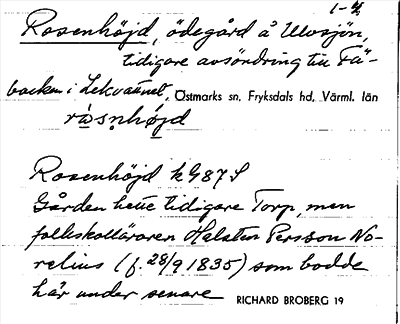 1-4
Rosenhöjd, ödegård å Ulvsjön,
tidigare avsöndring till Få-
backen i Lekvattnet, Östmarks sn, Fryksdals hd, Värml. län
rósnhöjd
Rosenhöjd k G 87 S
Gården hette tidigare Torp, men
folkskolläraren Halsten Persson No-
relius (f. 28/9 1835) som bodde
här under senare RICHARD BROBERG 19